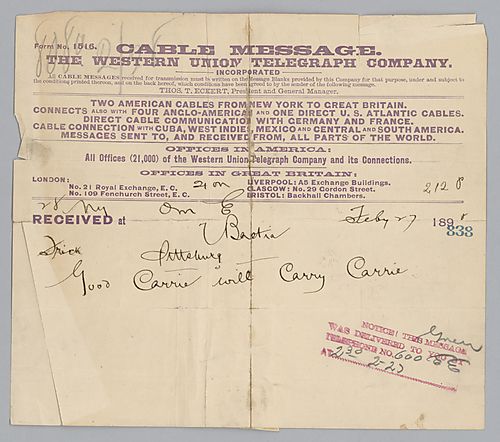 Form No. 1515.
CABLE MESSAGE.
THE WESTERN UNION TELEGRAPH COMPANY.
INCORPORATED
All CABLE MESSAGES received for transmission must be written on the Message Blanks provided by this Company for that purpose, under and subject to
the conditions printed thereon, and on the back hereof, which conditions have been agreed to by the sender of the following message.
THOS. T. ECKERT, President and General Manager.
TWO AMERICAN CABLES FROM NEW YORK TO GREAT BRITAIN.
CONNECTS ALSO WITH FOUR ANGLO-AMERICAN AND ONE DIRECT U. S. ATLANTIC CABLES.
DIRECT CABLE COMMUNICATION WITH GERMANY AND FRANCE.
CABLE CONNECTION WITH CUBA, WEST INDIES, MEXICO AND CENTRAL AND SOUTH AMERICA.
MESSAGES SENT TO, AND RECEIVED FROM, ALL PARTS OF THE WORLD.
OFFICES IN AMERICA:
All Offices (21,000) of the Western Union Telegraph Company and its Connections.
OFFICES IN GREAT BRITAIN:
LONDON:
No. 21 Royal Exchange, E. C.
No. 109 Fenchurch Street, E. C.
LIVERPOOL: A5 Exchange Buildings.
GLASGOW: No. 29 Gordon Street.
BRISTOL: Backhall Chambers.
212 P
28 Ny
RECEIVED at
Feby 27 189
838
Frick Pittsburg
Good Carrie will Carry Carrie
NOTICE! THIS MESSAGE
WAS DELIVERED TO YOU BY
TELEPHONE NO. 600
AT 230 2-27